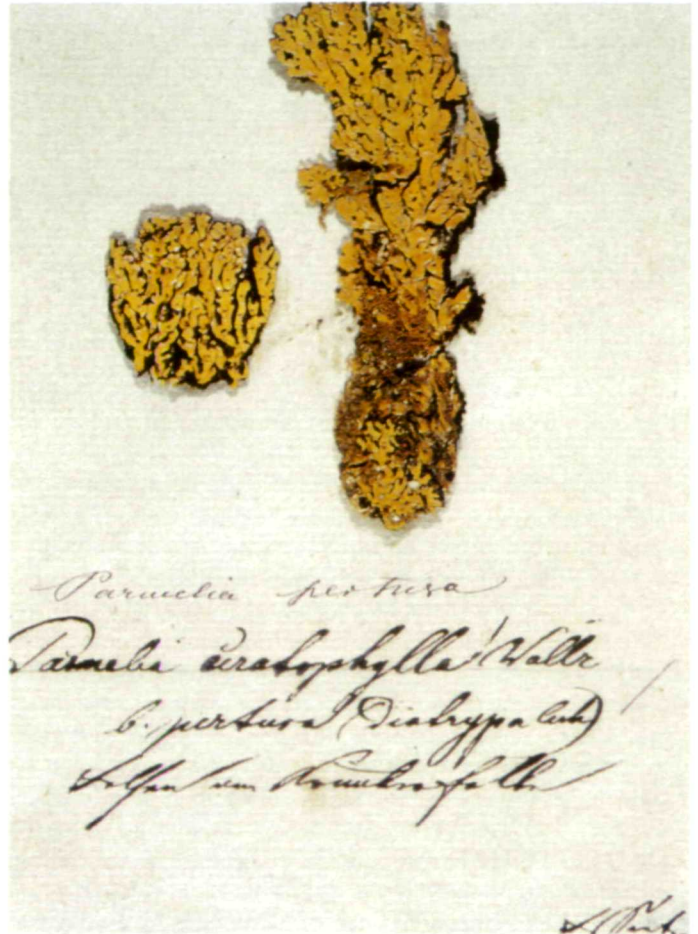 Parmelia pertusa
Parmelia ceratophylla Wallr
b. pertusa (diatrypa Ach)
Felsen am